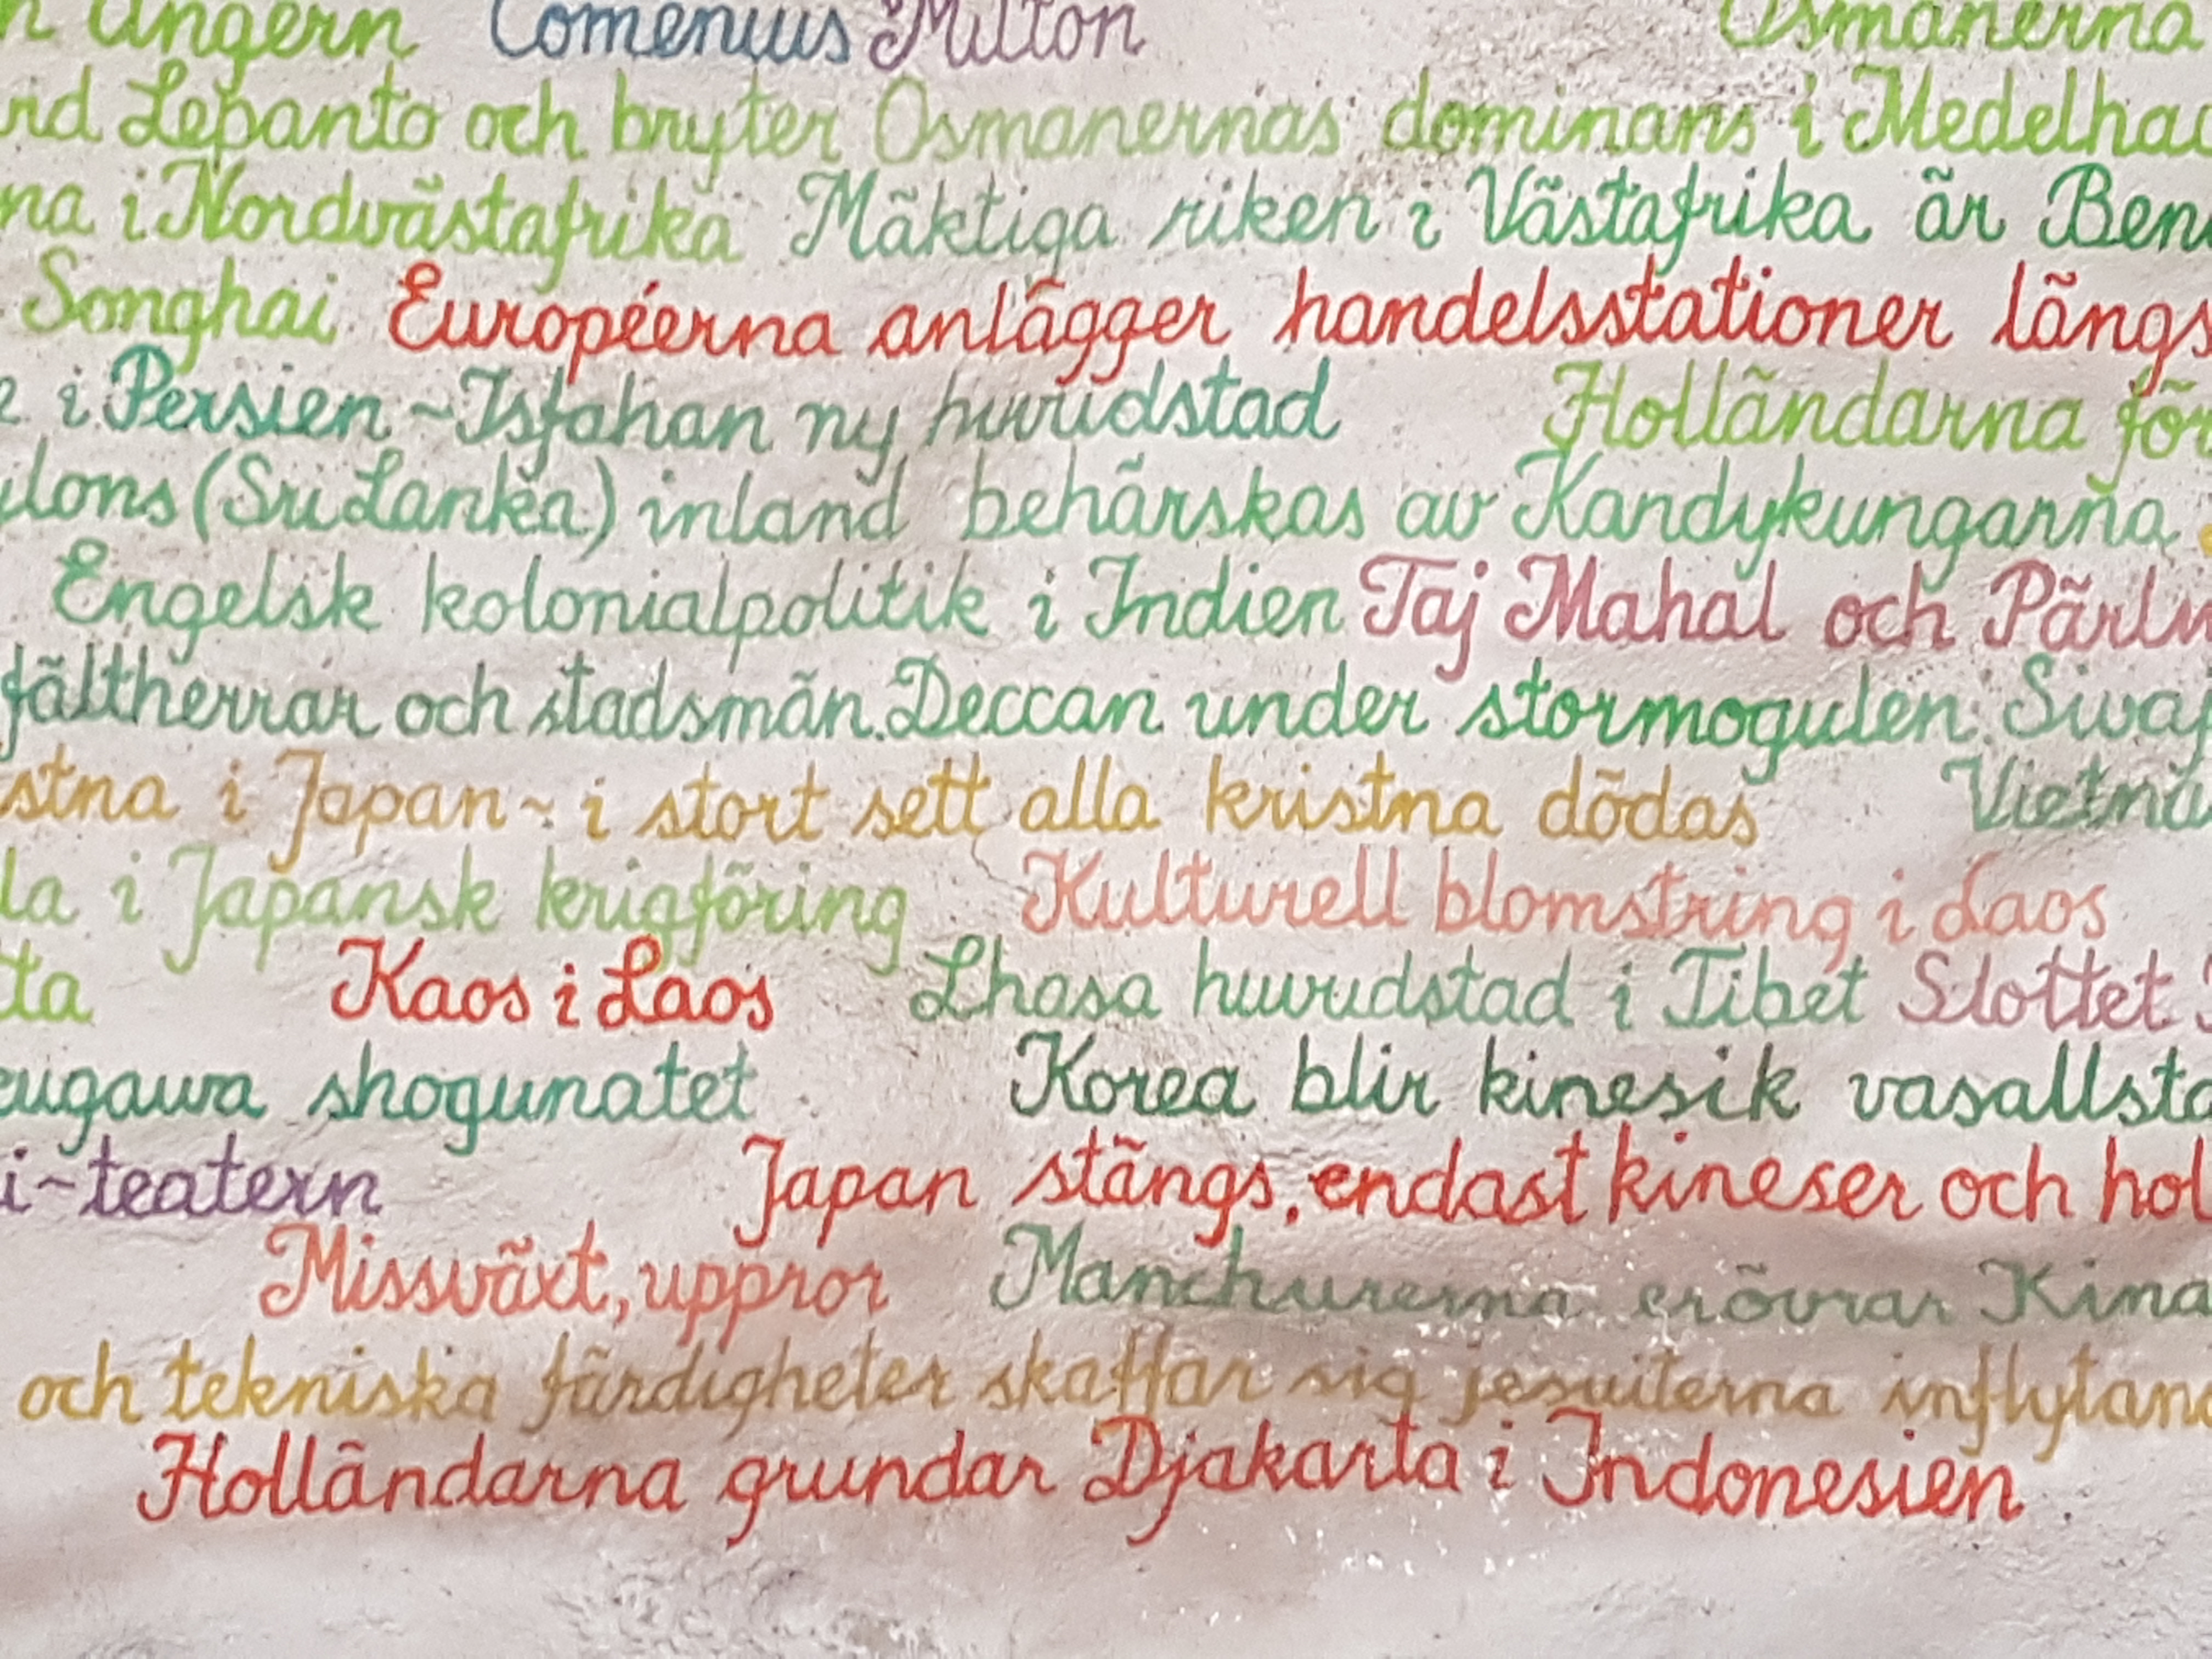 n Ungern Comenius Milton Osmanerna
vid Lepanto och bryter Osmanernas dominans i Medelhav
na i Nordvästafrika Mäktiga riken i Västafrika är Ben
Songhai Européerna anlägger handelsstationer längs
e i Persien ~ Isfahan ny huvudstad Holländarna för
ylons (Sri Lanka) inland behärskas av Kandykungarna
Engelsk kolonialpolitik i Indien Taj Mahal och Pärlm
fältherrar och stadsmän. Deccan under stormogulen Sivaj
stna i Japan ~ i stort sett alla kristna dödas Vietna
la i Japansk krigföring Kulturell blomstring i Laos
ta Kaos i Laos Lhasa huvudstad i Tibet Slottet
eugawa shogunatet Korea blir kinesisk vasallsta
i~teatern Japan stängs, endast kineser och hol
Missväxt, uppror Manchurerna erövrar Kina
och tekniska färdigheter skaffar sig jesuiterna inflytand
Holländarna grundar Djakarta i Indonesien